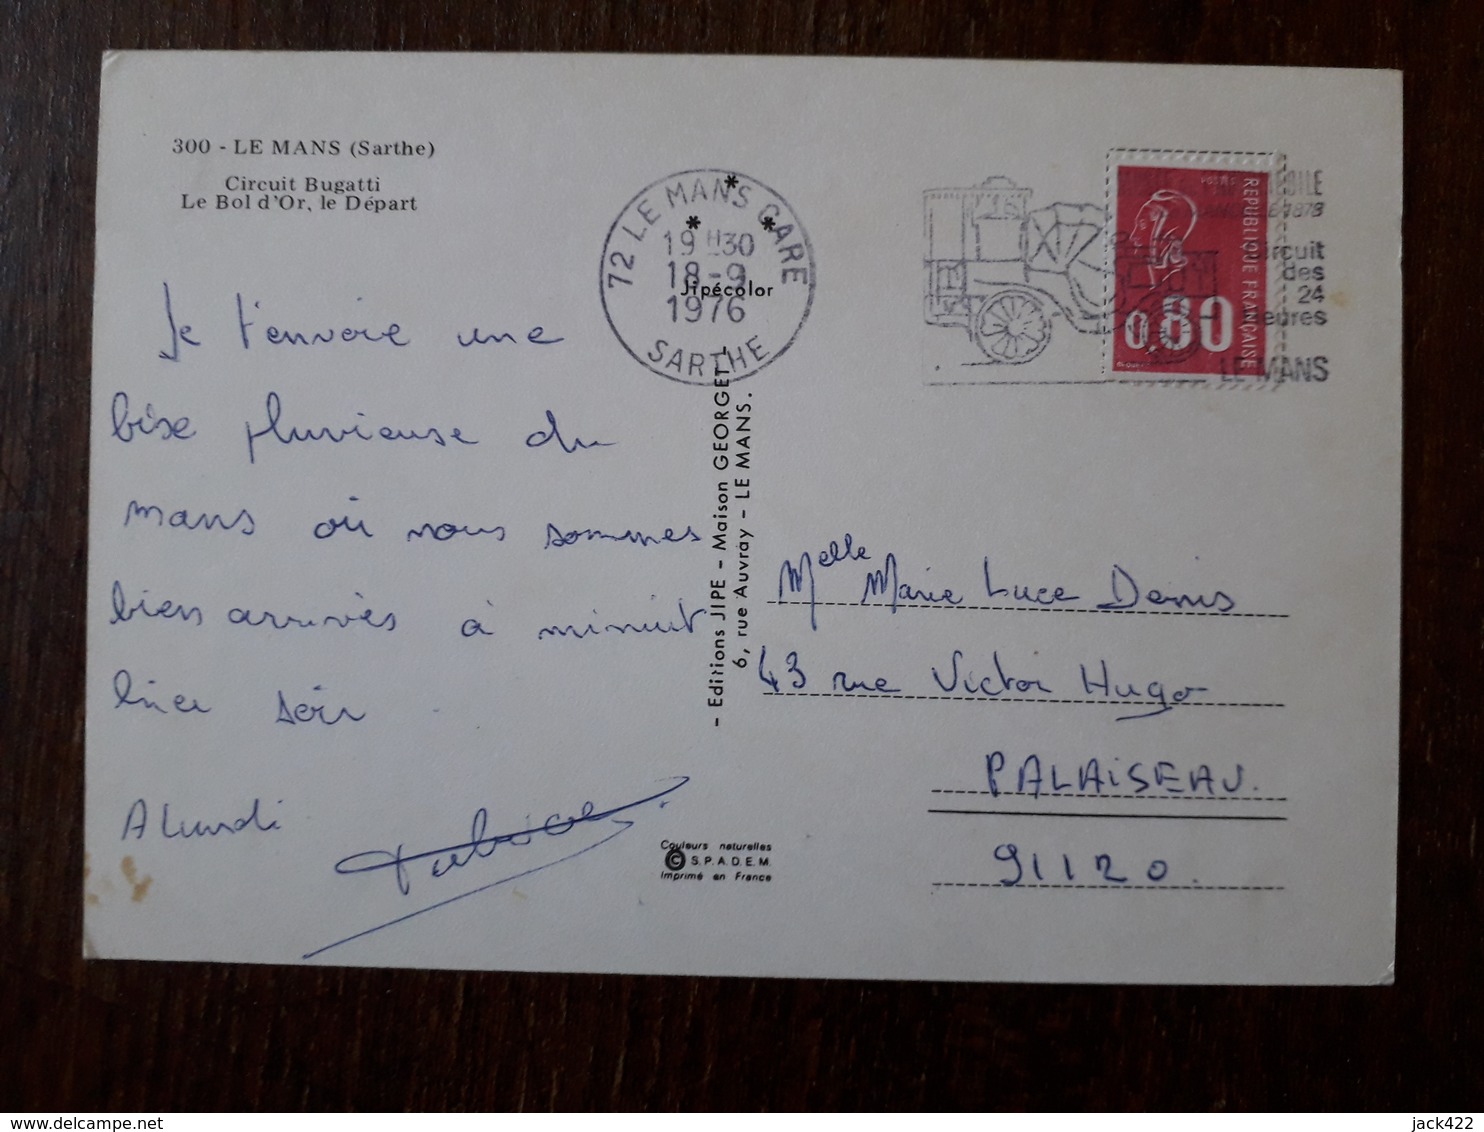 300 - LE MANS (Sarthe)
Circuit Bugatti
Le Bol d'Or, le Départ
Je t'envoie une
bise pluvieuse du
mans où nous sommes
bien arrivés à minuit
hier soir
A lundi
72 LE MANS GARE
19 H30
18 - 9
1976
SARTHE
Jipécolor
- Editions JIPE - Maison GEORGET -
6, rue Auvray - LE MANS.
Couleurs naturelles
© S.P.A.D.E.M.
Imprimé en France
POSTES
REPUBLIQUE FRANÇAISE
0,80
Circuit
des
24
Heures
LE MANS
Melle Marie Luce Denis
43 rue Victor Hugo
PALAISEAU.
91120.
delcampe.net
jack422